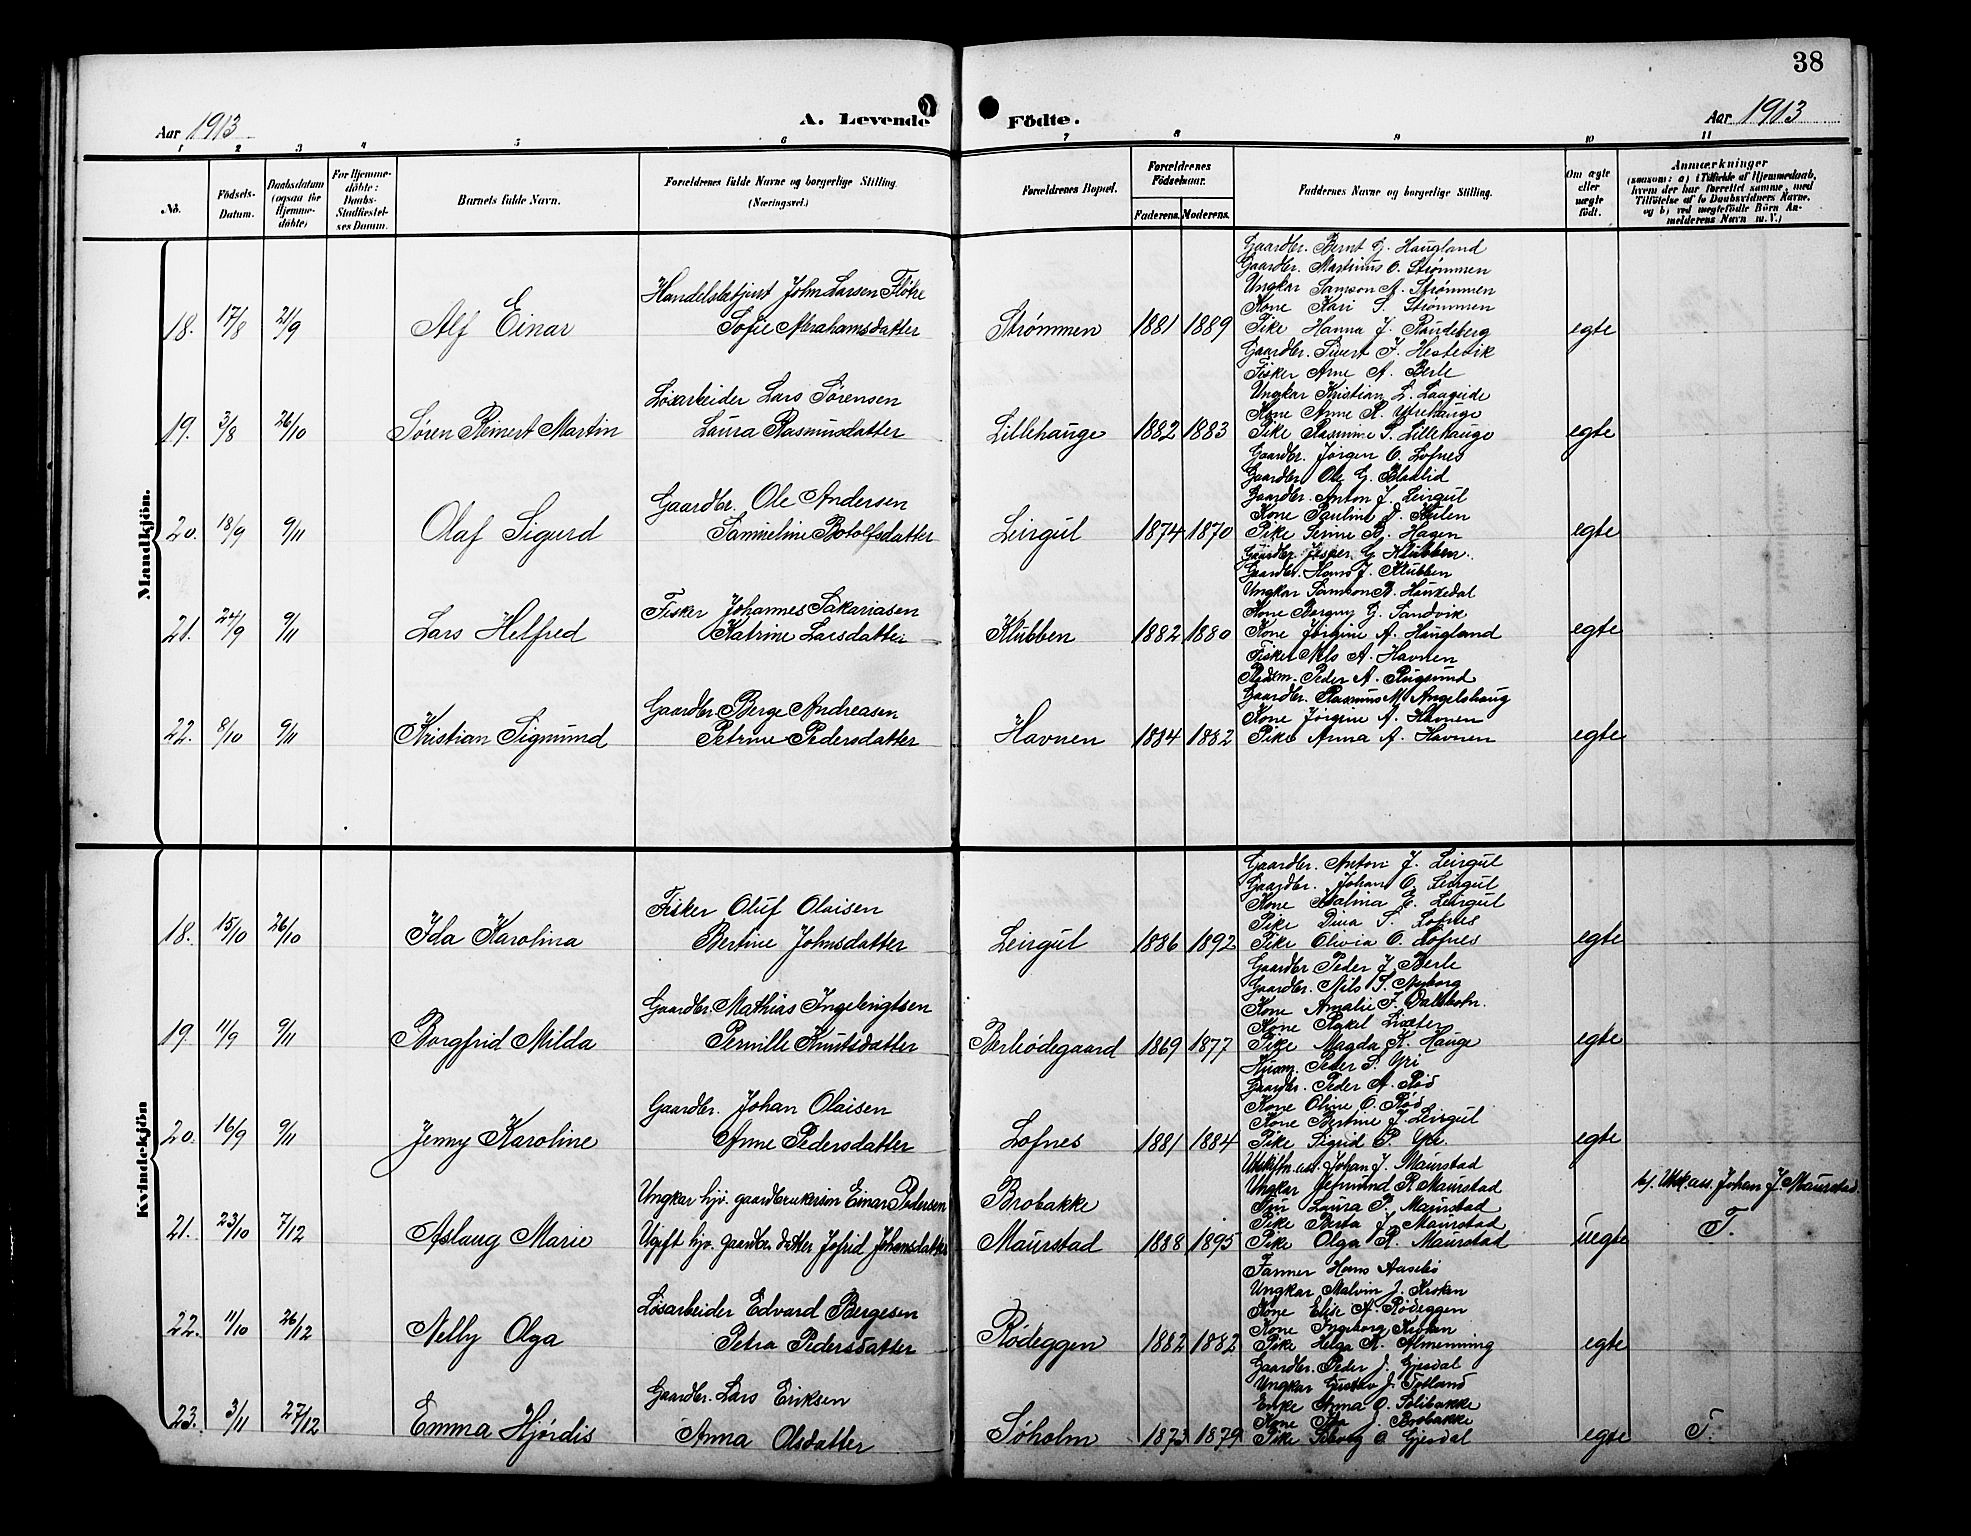 38
Aar 1913
A. Levende Födte.
Aar 1913
1 2 3 4 5 6 7 8 9 10 11
No.
Födsels-Datum.
Daabsdatum (ogsaa for Hjemme-döbte)
For Hjemme-döbte: Daabs-Stadfæstel-ses Datum.
Barnets fulde Navn.
Forældrenes fulde Navne og borgerlige Stilling. (Næringsvei.)
Forældrenes Bopæl.
Forældrenes Födselsaar.
Faderens. Moderens.
Faddernes Navne og borgerlige Stilling.
Om ægte eller uægte födt.
Anmærkninger
(saasom: a) i Tilfælde af Hjemmedaab, hvem der har forrettet samme, med Tilföielse af to Daabsvidners Navne, og b) ved uægtefödte Börn An-melderens Navn m. V.)
Mandkjön.
18. 17/8 21/9 Alf Einar
Handelsbetjent John Larsen Fløtre
Sofie Abrahamsdatter
Strømmen 1881 1889
Gaardbr. Bernt G. Haugland
Gaardbr. Martinus O. Strømmen
Ungkar Samson A. Strømmen
Kone Kari S. Strømmen
Pike Hanna J. Raudeberg
egte
19. 3/8 26/10 Søren Reinert Martin
Løsarbeider Lars Sørensen
Laura Rasmusdatter
Lillehauge 1882 1883
Gaardbr. Sivert J. Hestevik
Fisker Arne A. Berle
Ungkar Kristian L. Laageide
Kone Anne R. Ytrehauge
Pike Rasmine P. Lillehauge
egte
20. 18/9 9/11 Olaf Sigurd
Gaardbr. Ole Andersen
Samueline Botolfsdatter
Leirgul 1874 1870
Gaardbr. Jørgen O. Lofnes
Gaardbr Ole G. Bladlid
Gaardbr. Anton J. Leirgul
Kone Pauline D. Hulen
Pike Serine B. Hagen
egte
21. 24/9 9/11 Lars Helfred
Fisker Johannes Sakariasen
Katrine Larsdatter
Klubben 1882 1880
Gaardbr. Jesper G. Klubben.
Gaardbr. Hans J. Klubben
Ungkar Samson B. Haukedal
Kone Bergny G. Sandvik
Kone Jørgine A. Haugland
egte
22. 8/10 9/11 Kristian Sigmund
Gaardbr. Berge Andreasen
Petrine Pedersdatter
Havnen 1884 1882
Fisker Nils A. Havnen
Peder A. Rugsund
Gaardbr. Rasmus M. Angelshaug
Kone Jørgine A. Havnen
Pike Anna A. Havnen
egte
Kvindekjön
18. 15/10 26/10 Ida Karolina
Fisker Oluf Olaisen
Bertine Johnsdatter
Leirgul 1886 1892
Gaardbr. Anton J. Leirgul
Gaardbr. Johan O. Leirgul
Kone Malina E. Leirgul
Pike Dina S. Lofnes
Pike Olivia O. Lofnes
egte
19. 11/9 9/11 Borgfrid Milda
Gaardbr. Mathias Ingebrigtsen
Pernille Knutsdatter
Berleødegaard 1869 1877
Gaardbr Peder J. Berle
Gaardbr. Nils S. Nyborg
Kone Amalie J. Dalsbotn.
Kone Rakel Liseter
Pike Magda K. Hauge
egte
20. 16/9 9/11 Jenny Karoline
Gaardbr. Johan Olaisen
Anne Pedersdatter
Lofnes 1881 1884
Husm. Peder S. Yri
Gaardbr. Peder A. Rød
Kone Oline O. Rød
Kone Bertine J. Leirgul
Pike Sigrid P. Yri
egte
21. 23/10 7/12 Aslaug Marie
Ungkar hjv. gaardbrukersøn Einar Pedersen
Ugift hjv. gaardbr. datter Jofrid Johansdatter
Brobakke
Maurstad 1888 1895
Johan J. Maurstad
Ungkar Jetmund R. Maurstad
Laura P. Maurstad
Pike Berta J. Maurstad
Pike Olga R. Maurstad
uegte
b). Utsk.ass. Johan J. Maurstad.
T.
22. 11/10 26/12 Nelby Olga
Løsarbeider Edvard Bergesen
Petra Pedersdatter
Rødeggen 1882 1882
Farmer Hans Aasebø
Ungkar Malvin J. Kroken
Kone Elise A. Rødeggen
Kone Ingeborg Kroken
Pike Helga K. Almenning
egte
23. 3/11 27/12 Emma Hjørdis
Gaardbr. Lars Eriksen
Anna Olsdatter
Søholm 1873 1879
Gaardbr. Peder J. Gjesdal
Ungkar Gustav J. Totland
Enke Anna O. Solibakke
Kone J. Brobakke
Pike O. Gjesdal
egte
T.